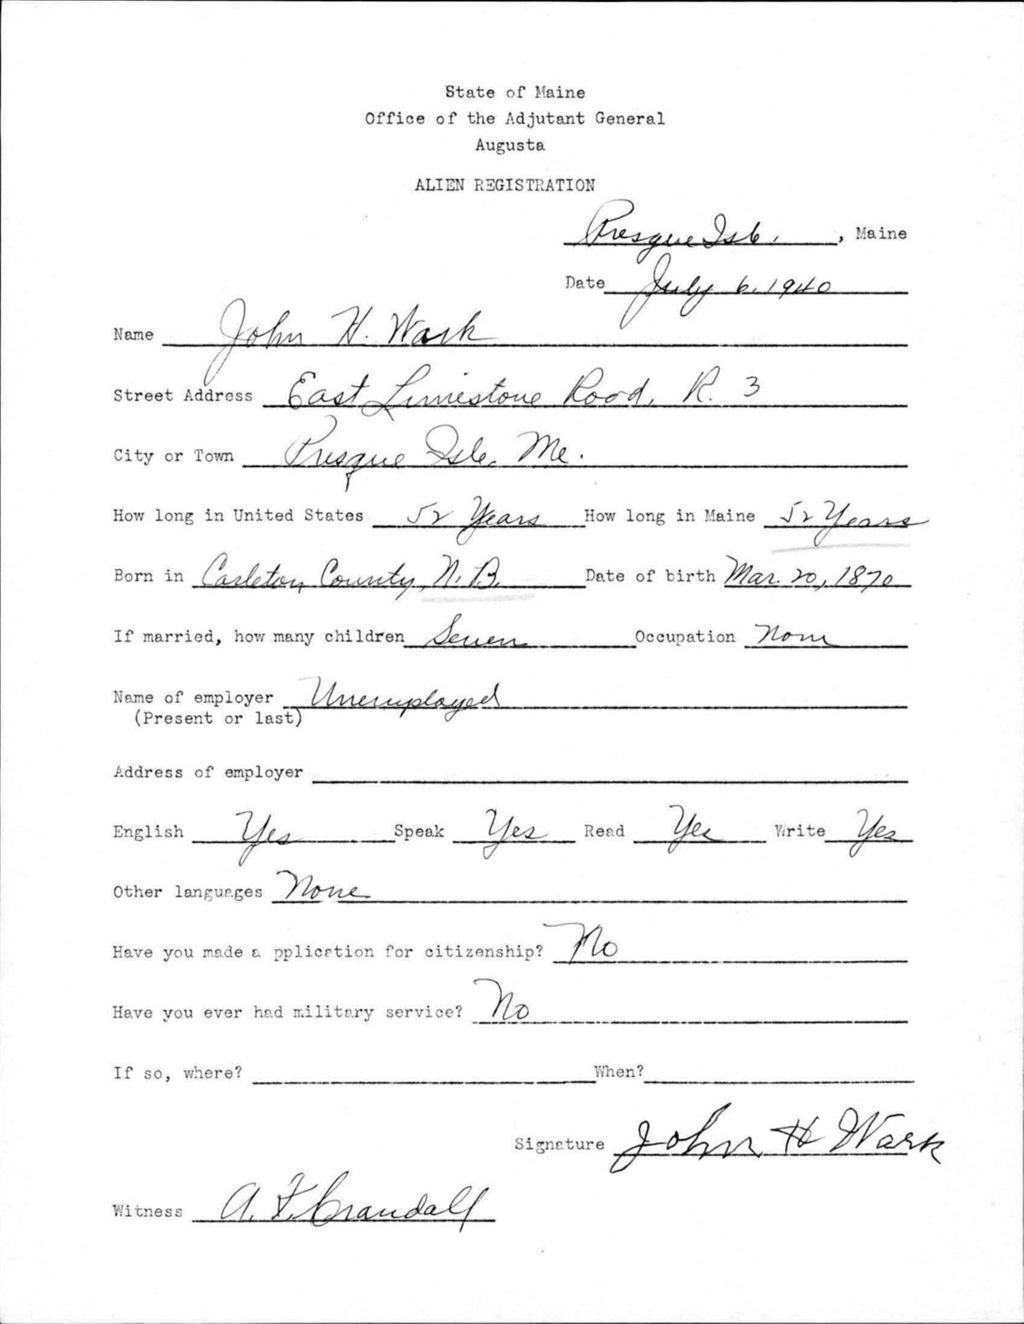 State of Maine
Office of the Adjutant General
Augusta
ALIEN REGISTRATION
Presque Isle, , Maine
Date July 6, 1940
Name John H. Wark
Street Address East Limestone Road, R. 3
City or Town Presque Isle, Me.
How long in United States 52 Years How long in Maine 52 Years
Born in Carleton County, N.B. Date of birth Mar. 20, 1870
If married, how many children Seven Occupation None
Name of employer Unemployed
(Present or last)
Address of employer
English Yes Speak Yes Read Yes Write Yes
Other languages None
Have you made a pplication for citizenship? No
Have you ever had military service? No
If so, where? When?
Signature John H Wark
Witness A. F. Crandall